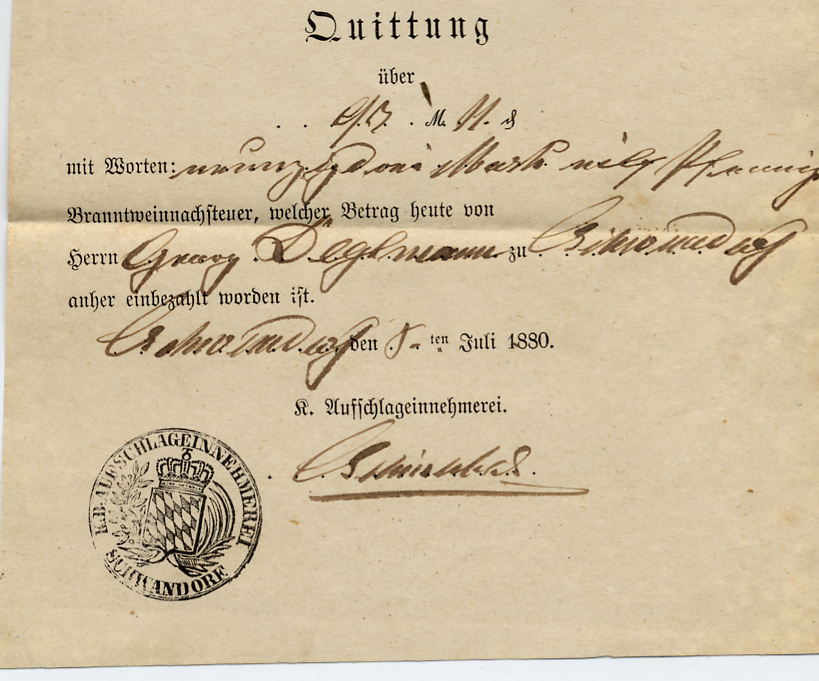 Quittung
über
93. M. 11. ₰
mit Worten: neunzigdrei Mark eilf Pfennig
Branntweinnachsteuer, welcher Betrag heute von
Herrn Georg Deglmann zu Schwandorf
anher einbezahlt worden ist.
Schwandorf den 8. ten Juli 1880.
K. Aufschlageinnehmerei.
K.B. AUFSCHLAGEINNEHMEREI
SCHWANDORF